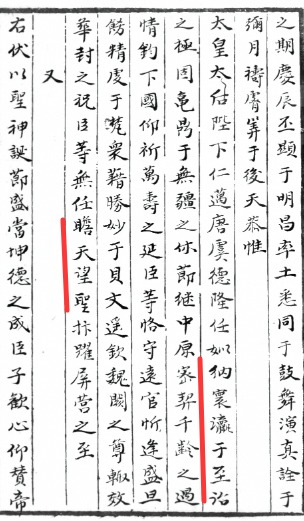 之期慶辰丕顯于明昌率土悉同于鼓舞演真詮于
彌月禱膺筭于後天恭惟
太皇太后陛下仁邁唐虞德隆任姒納寰瀛于至治
之極固龜鼎于無疆之休節継中原契千齡之遇
情鈞下國仰祈萬壽之延臣等恪守遠官忻逢盛旦
餝精虔于梵衆藉勝妙于貝文遥欽魏闕之尊輙效
華封之祝臣等無任瞻天望聖抃躍屏營之至
又
右伏以聖神誕節盛當坤德之成臣子歡心仰贊帝